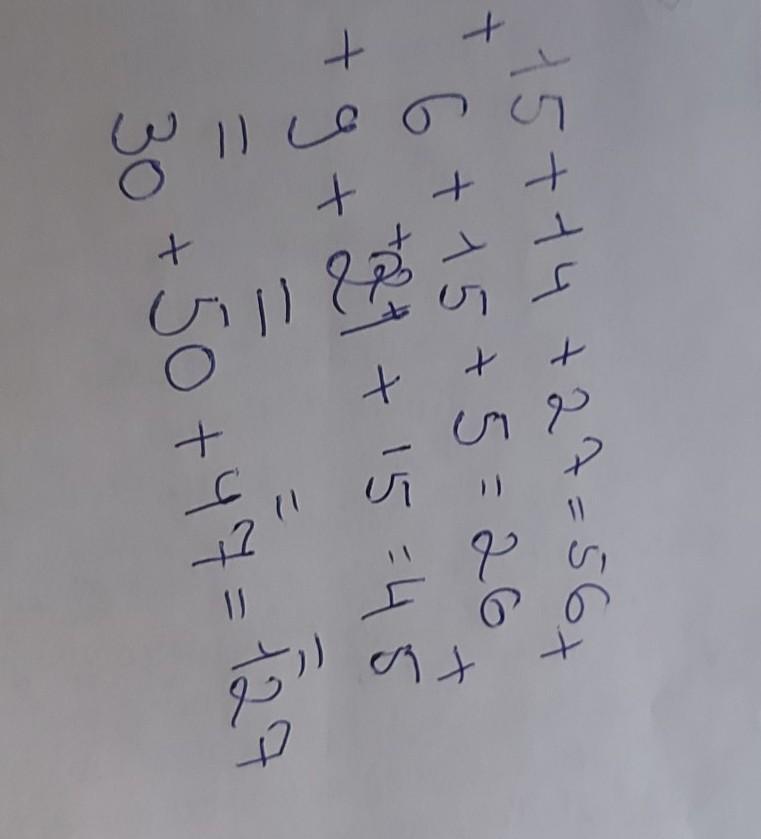 15 + 14 + 27 = 56
+ +
6 + 15 + 5 = 26
+ + +
9 + 21 + 15 = 45
= = = =
30 + 50 + 47 = 127